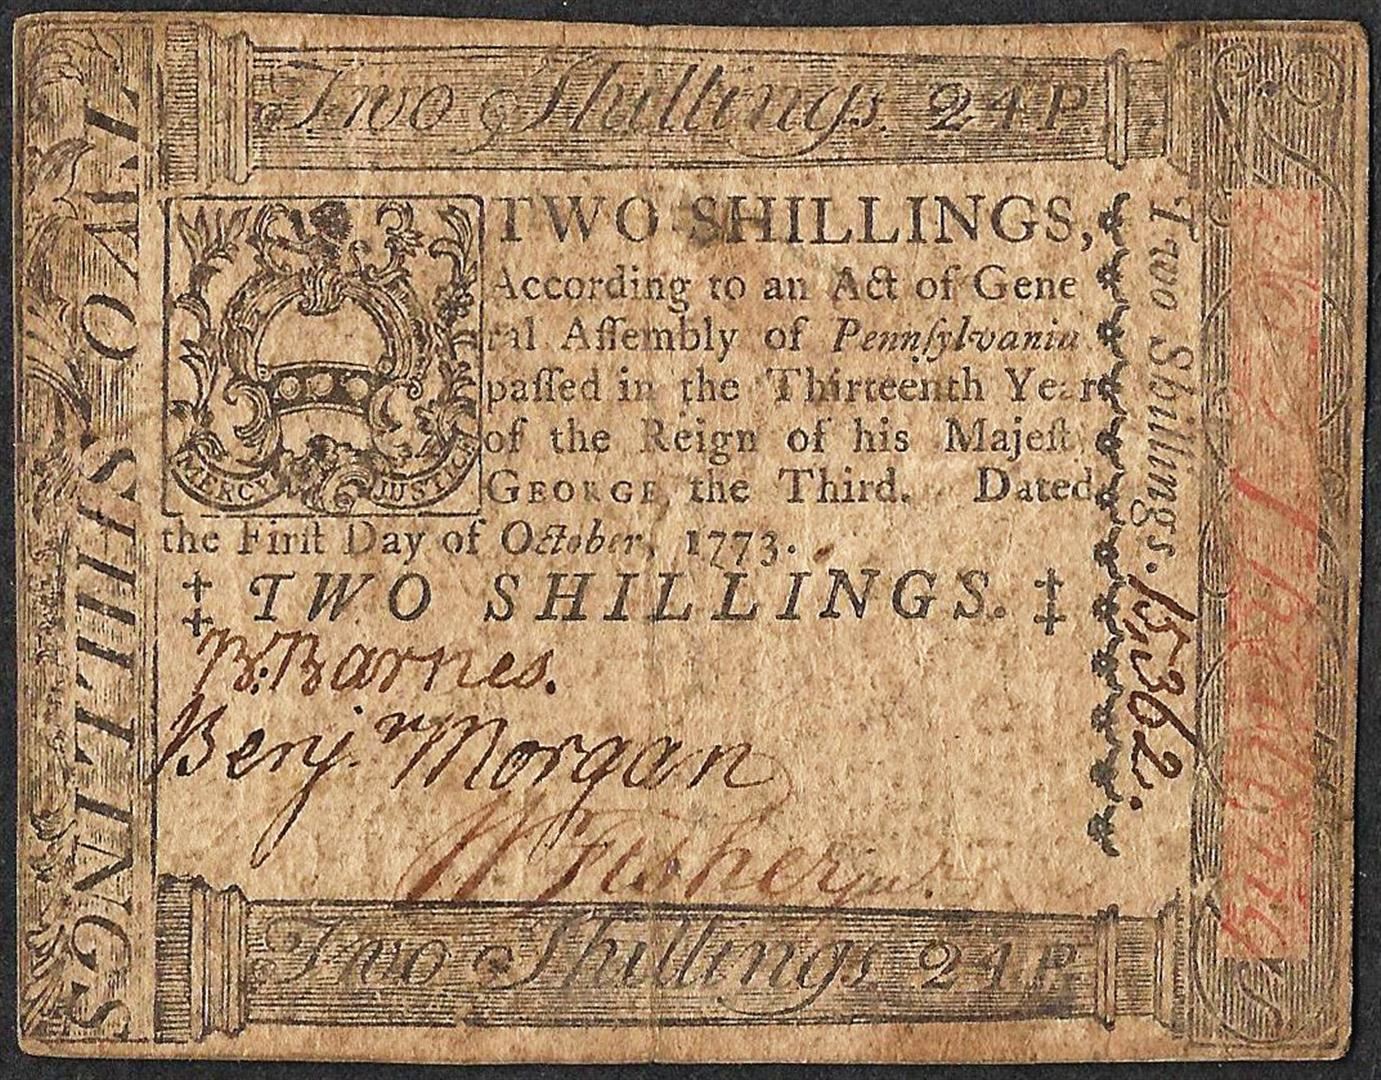 Two Shillings. 24 P.
TWO SHILLINGS
TWO SHILLINGS,
According to an Act of Gene
ral Aſſembly of Pennſylvania
paſſed in the Thirteenth Year
of the Reign of his Majeſty
GEORGE the Third. Dated
the Firſt Day of October, 1773.
MERCY JUSTICE
‡ TWO SHILLINGS. ‡
B. Barnes.
Benjn Morgan
W Fisher junr.
Two Shillings. 24 P.
Two Shillings. 15362.